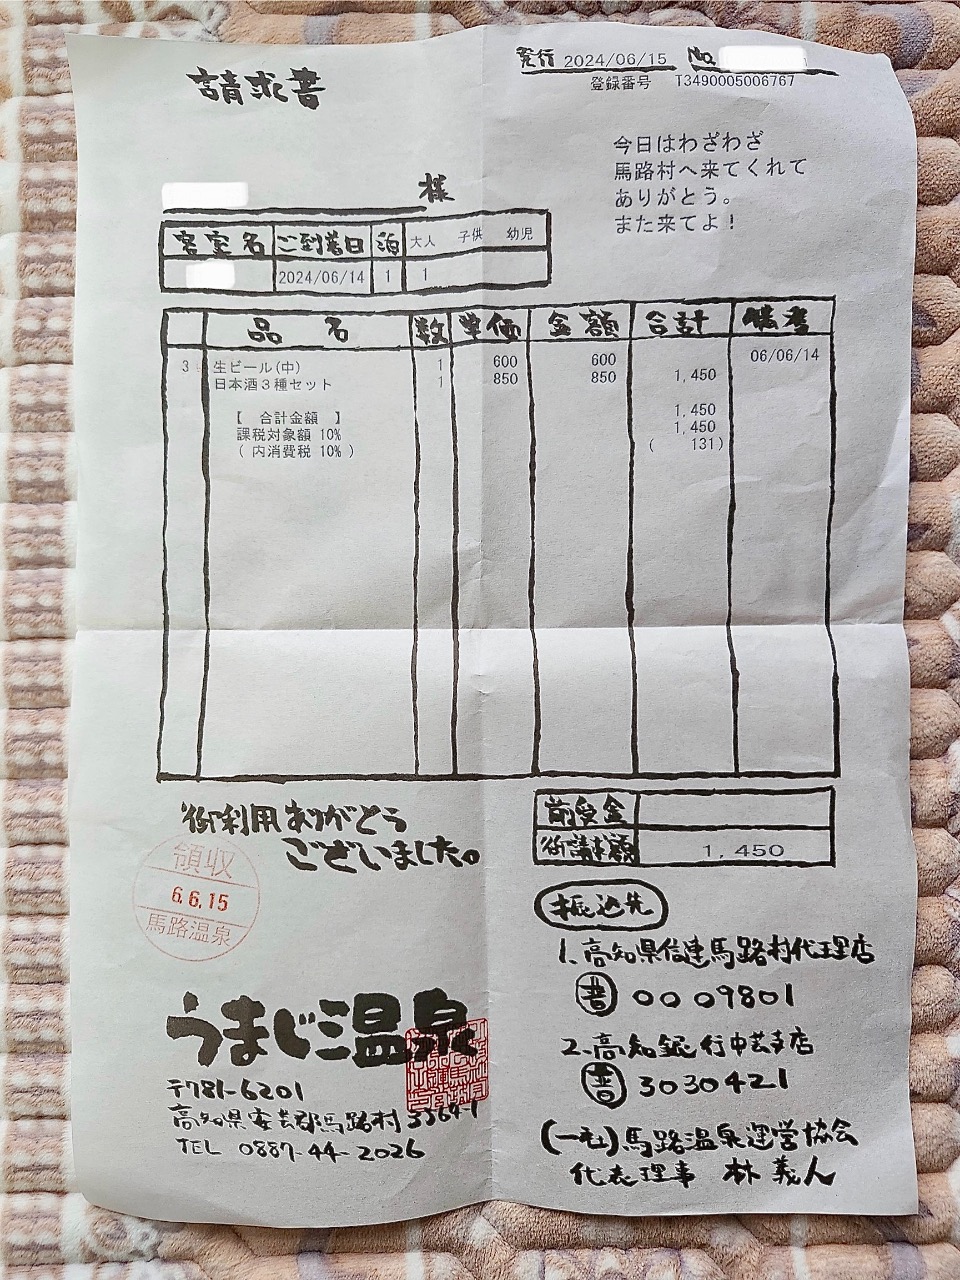 請求書
発行 2024/06/15 No.
登録番号 T3490005006767
今日はわざわざ
馬路村へ来てくれて
ありがとう。
また来てよ！
様
客室名 ご到着日 泊 大人 子供 幼児
2024/06/14 1 1
品名 数 単価 金額 合計 備考
06/06/14
3 生ビール(中) 1 600 600
日本酒３種セット 1 850 850 1,450
【 合計金額 】 1,450
課税対象額 10% 1,450
( 内消費税 10% ) ( 131)
御利用ありがとう
ございました。
前受金
御請求額 1,450
領収
6.6.15
馬路温泉
振込先
1. 高知県信連馬路村代理店
普 0009801
2. 高知銀行中芸支店
普 3030421
(一社)馬路温泉運営協会
代表理事 林 義人
うまじ温泉
〒781-6201
高知県安芸郡馬路村3564-1
TEL 0887-44-2026